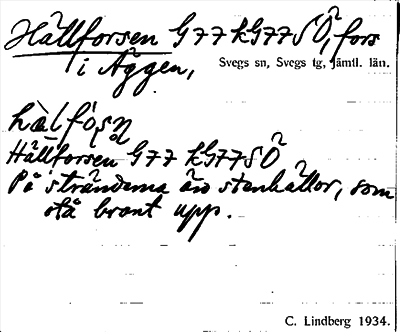 Hällforsen G77 kG77SÖ, fors
i Äggen,
Svegs sn, Svegs tg, Jämtl. län.
hàlfòsn
Hällforsen G77 kG77SÖ
På stränderna äro stenhällor, som
stå brant upp.
C. Lindberg 1934.